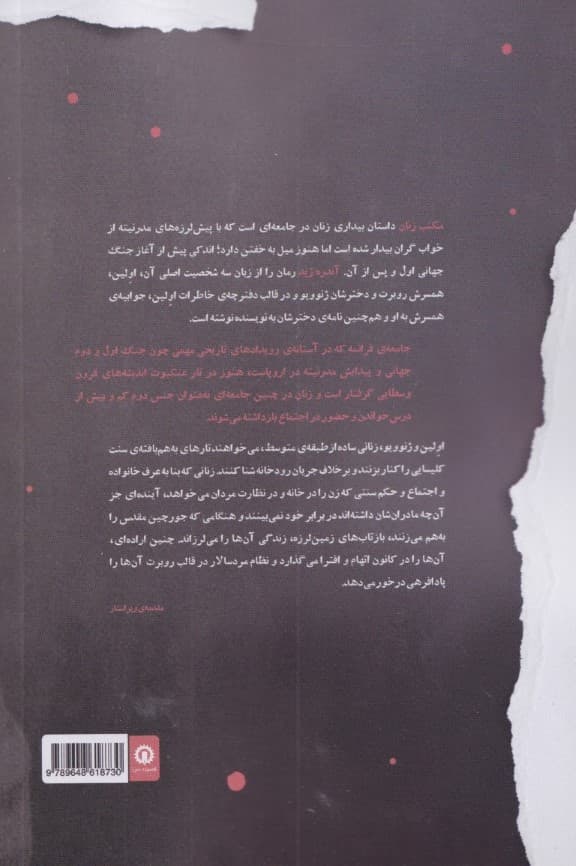 مکتب زنان داستان بیداری زنان در جامعه‌ای است که با پیش‌لرزه‌های مدرنیته از
خواب گران بیدار شده است اما هنوز میل به خفتن دارد؛ اندکی پیش از آغاز جنگ
جهانی اول و پس از آن. آندره ژید رمان را از زبان سه شخصیت اصلی آن، اولین،
همسرش روبرت و دخترشان ژنوویو و در قالب دفترچه‌ی خاطرات اولین، جوابیه‌ی
همسرش به او و هم‌چنین نامه‌ی دخترشان به نویسنده نوشته است.
جامعه‌ی فرانسه که در آستانه‌ی رویدادهای تاریخی مهمی چون جنگ اول و دوم
جهانی و پیدایش مدرنیته در اروپاست، هنوز در تار عنکبوت اندیشه‌های قرون
وسطایی گرفتار است و زنان در چنین جامعه‌ای به‌عنوان جنس دوم کم و بیش از
درس خواندن و حضور در اجتماع بازداشته می‌شوند.
اولین و ژنوویو، زنانی ساده از طبقه‌ی متوسط، می‌خواهند تارهای به‌هم‌بافته‌ی سنت
کلیسایی را کنار بزنند و برخلاف جریان رودخانه شنا کنند. زنانی که بنا به عرف خانواده
و اجتماع و حکم سنتی که زن را در خانه و در نظارت مردان می‌خواهد، آینده‌ای جز
آن‌چه مادران‌شان داشته‌اند در برابر خود نمی‌بینند و هنگامی که جورچین مقدس را
به‌هم می‌زنند، بازتاب‌های زمین‌لرزه، زندگی آن‌ها را می‌لرزاند. چنین اراده‌ای،
آن‌ها را در کانون اتهام و افترا می‌گذارد و نظام مردسالار در قالب روبرت آن‌ها را
پادافرهی درخور می‌دهد.
مقدمه‌ی ویراستار
9 789648 618730